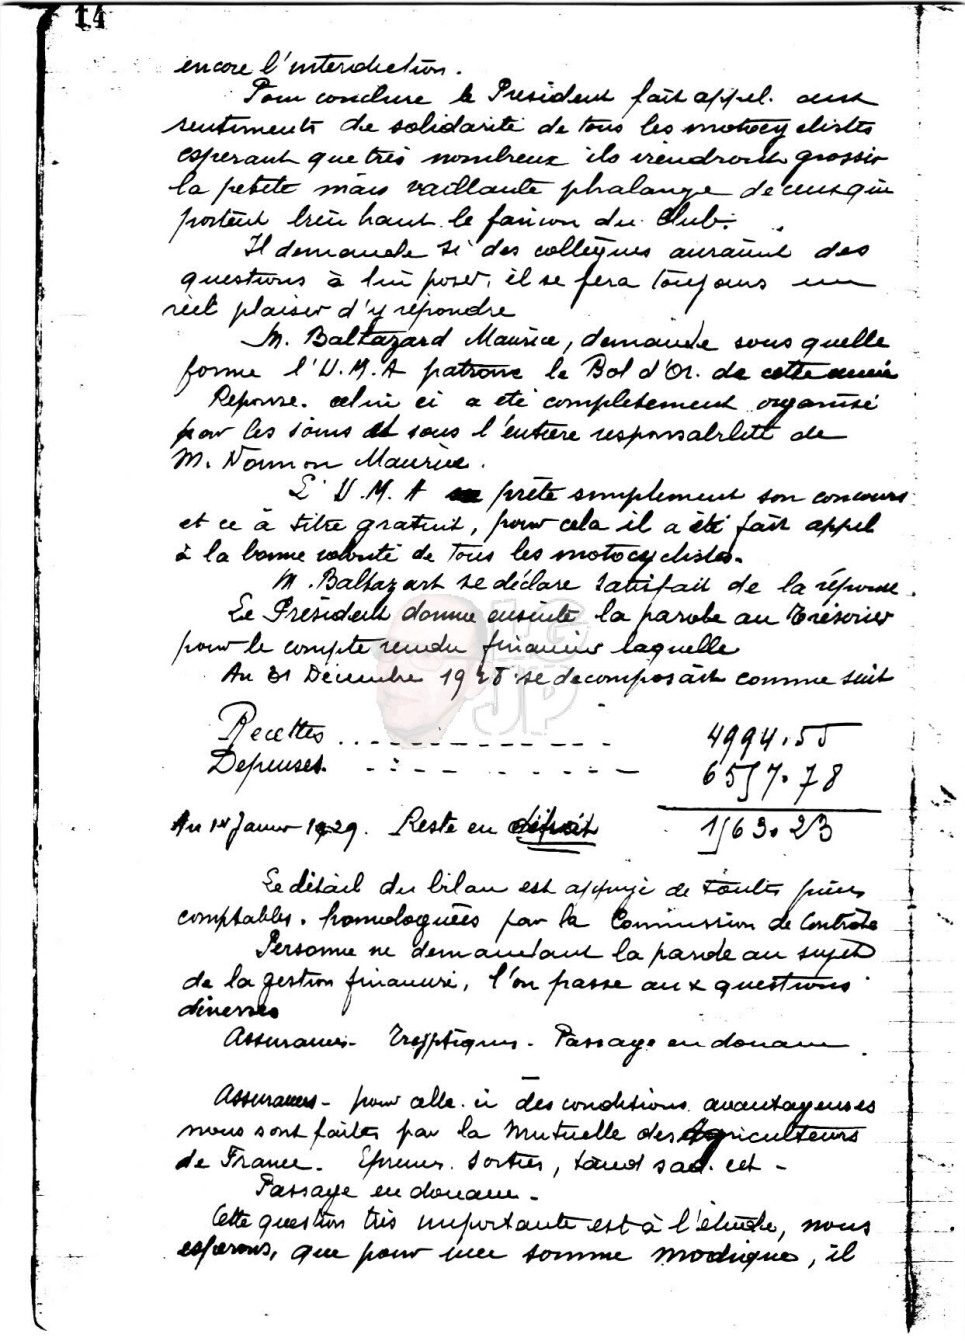 14
encore l'interdiction.
Pour conclure le President fait appel aux
sentiments de solidarite de tous les motocyclistes
esperant que très nombreux ils viendront grossir
la petite mais vaillante phalange de ceux qui
portent bien haut le fanion du Club.
Il demande si des collègues auraient des
questions à lui poser, il se fera toujours un
réel plaisir d'y répondre
M. Baltazard Maurice, demande sous quelle
forme l'U.M.A patronne le Bol d'Or. de cette année
Reponse. celui ci a été completement organisé
par les soins et sous l'entière responsabilité de
M. Maurice.
L'U.M.A prête simplement son concours
et ce à titre gratuit, pour cela il a été fait appel
à la bonne volonté de tous les motocyclistes.
M. Baltazart se déclare satisfait de la réponse.
Le President donne ensuite la parole au Trésorier
pour le compte rendu financier laquelle
Au 31 Décembre 1928 se decomposait comme suit
HG
JP
Recettes 4994.55
Depenses. 6557.78
Au 1er Janvier 1929. Reste en déficit 1563.23
Le détail du bilan est appuyé de toutes pièces
comptables. homologuées par la Commission de Contrôle
Personne ne demandant la parole au sujet
de la gestion financière, l'on passe aux questions
diverses
Assurances - Tryptiques - Passage en douane.
Assurances - pour celle ci des conditions avantageuses
nous sont faites par la Mutuelle des Agriculteurs
de France. Epreuves. sorties,
Passage en douane -
Cette question très importante est à l'étude, nous
esperons, que pour une somme modique, il